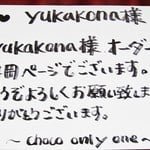 ♥ yukakona様
yukakona様 オーダー
専用ページでございます。
どうぞよろしくお願い致しま
ありがとうございます。
~ choco only one ~